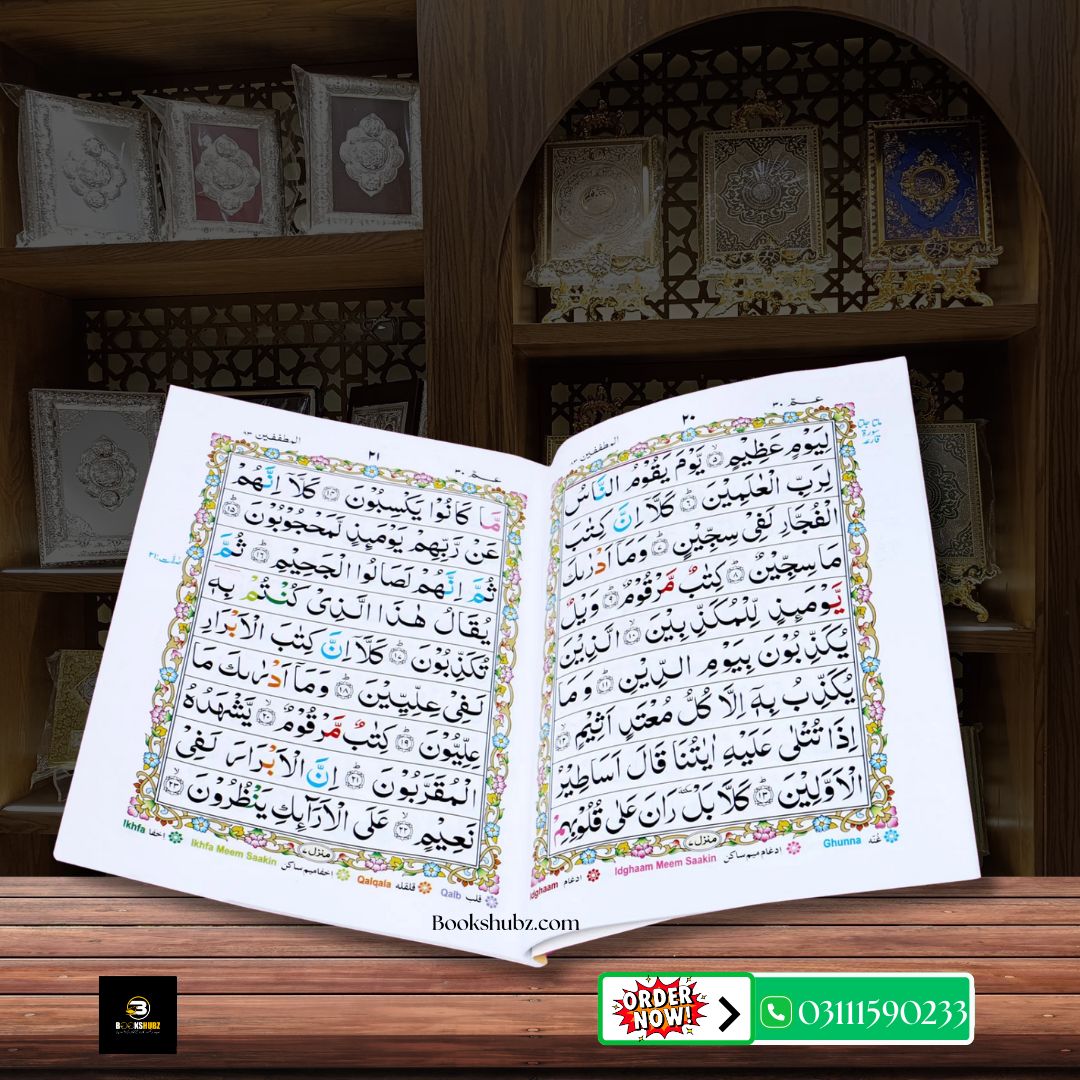 عـــمّ ٣٠
٢٠
المطففين ٨٣
لِيَوْمٍ عَظِيْمٍ ۙ﴿٥﴾ يَّوْمَ يَقُوْمُ النَّاسُ
لِرَبِّ الْعٰلَمِيْنَ ؕ﴿٦﴾ كَلَّاۤ اِنَّ كِتٰبَ
الْفُجَّارِ لَفِيْ سِجِّيْنٍ ؕ﴿٧﴾ وَمَاۤ اَدْرٰىكَ
مَا سِجِّيْنٌ ؕ﴿٨﴾ كِتٰبٌ مَّرْقُوْمٌ ؕ﴿٩﴾ وَيْلٌ
يَّوْمَىِٕذٍ لِّلْمُكَذِّبِيْنَ ۙ﴿١٠﴾ الَّذِيْنَ
يُكَذِّبُوْنَ بِيَوْمِ الدِّيْنِ ؕ﴿١١﴾ وَمَا
يُكَذِّبُ بِهٖۤ اِلَّا كُلُّ مُعْتَدٍ اَثِيْمٍ ۙ﴿١٢﴾
اِذَا تُتْلٰى عَلَيْهِ اٰيٰتُنَا قَالَ اَسَاطِيْرُ
الْاَوَّلِيْنَ ؕ﴿١٣﴾ كَلَّا بَلْ رَانَ عَلٰى قُلُوْبِهِمْ
منزل ٧
غنه Ghunna
ادغام ميم ساكن Idghaam Meem Saakin
ادغام dghaam
عـــمّ ٣٠
٢١
المطففين ٨٣
مَّا كَانُوْا يَكْسِبُوْنَ ﴿١٤﴾ كَلَّاۤ اِنَّهُمْ
عَنْ رَّبِّهِمْ يَوْمَىِٕذٍ لَّمَحْجُوْبُوْنَ ؕ﴿١٥﴾
ثُمَّ اِنَّهُمْ لَصَالُوا الْجَحِيْمِ ؕ﴿١٦﴾ ثُمَّ
يُقَالُ هٰذَا الَّذِيْ كُنْتُمْ بِهٖ
تُكَذِّبُوْنَ ؕ﴿١٧﴾ كَلَّاۤ اِنَّ كِتٰبَ الْاَبْرَارِ
لَفِيْ عِلِّيِّيْنَ ؕ﴿١٨﴾ وَمَاۤ اَدْرٰىكَ مَا
عِلِّيُّوْنَ ؕ﴿١٩﴾ كِتٰبٌ مَّرْقُوْمٌ ۙ﴿٢٠﴾ يَّشْهَدُهُ
الْمُقَرَّبُوْنَ ؕ﴿٢١﴾ اِنَّ الْاَبْرَارَ لَفِيْ
نَعِيْمٍ ۙ﴿٢٢﴾ عَلَى الْاَرَآىِٕكِ يَنْظُرُوْنَ ۙ﴿٢٣﴾
منزل ٧
قلب Qalb
قلقله Qalqala
اخفا ميم ساكن Ikhfa Meem Saakin
اخفا Ikhfa
Bookshubz.com
BOOKSHUBZ
ORDER NOW!
03111590233